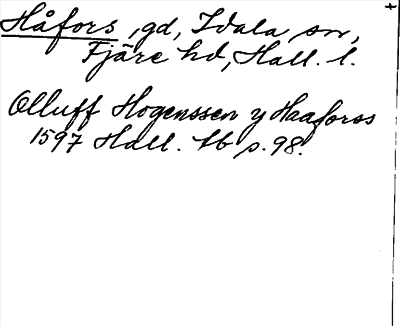 Håfors, gd, Idala sn,
Fjäre hd, Hall. l.
Olluff Hogenssen y Haaforss
1597 Hall. tb s. 98.